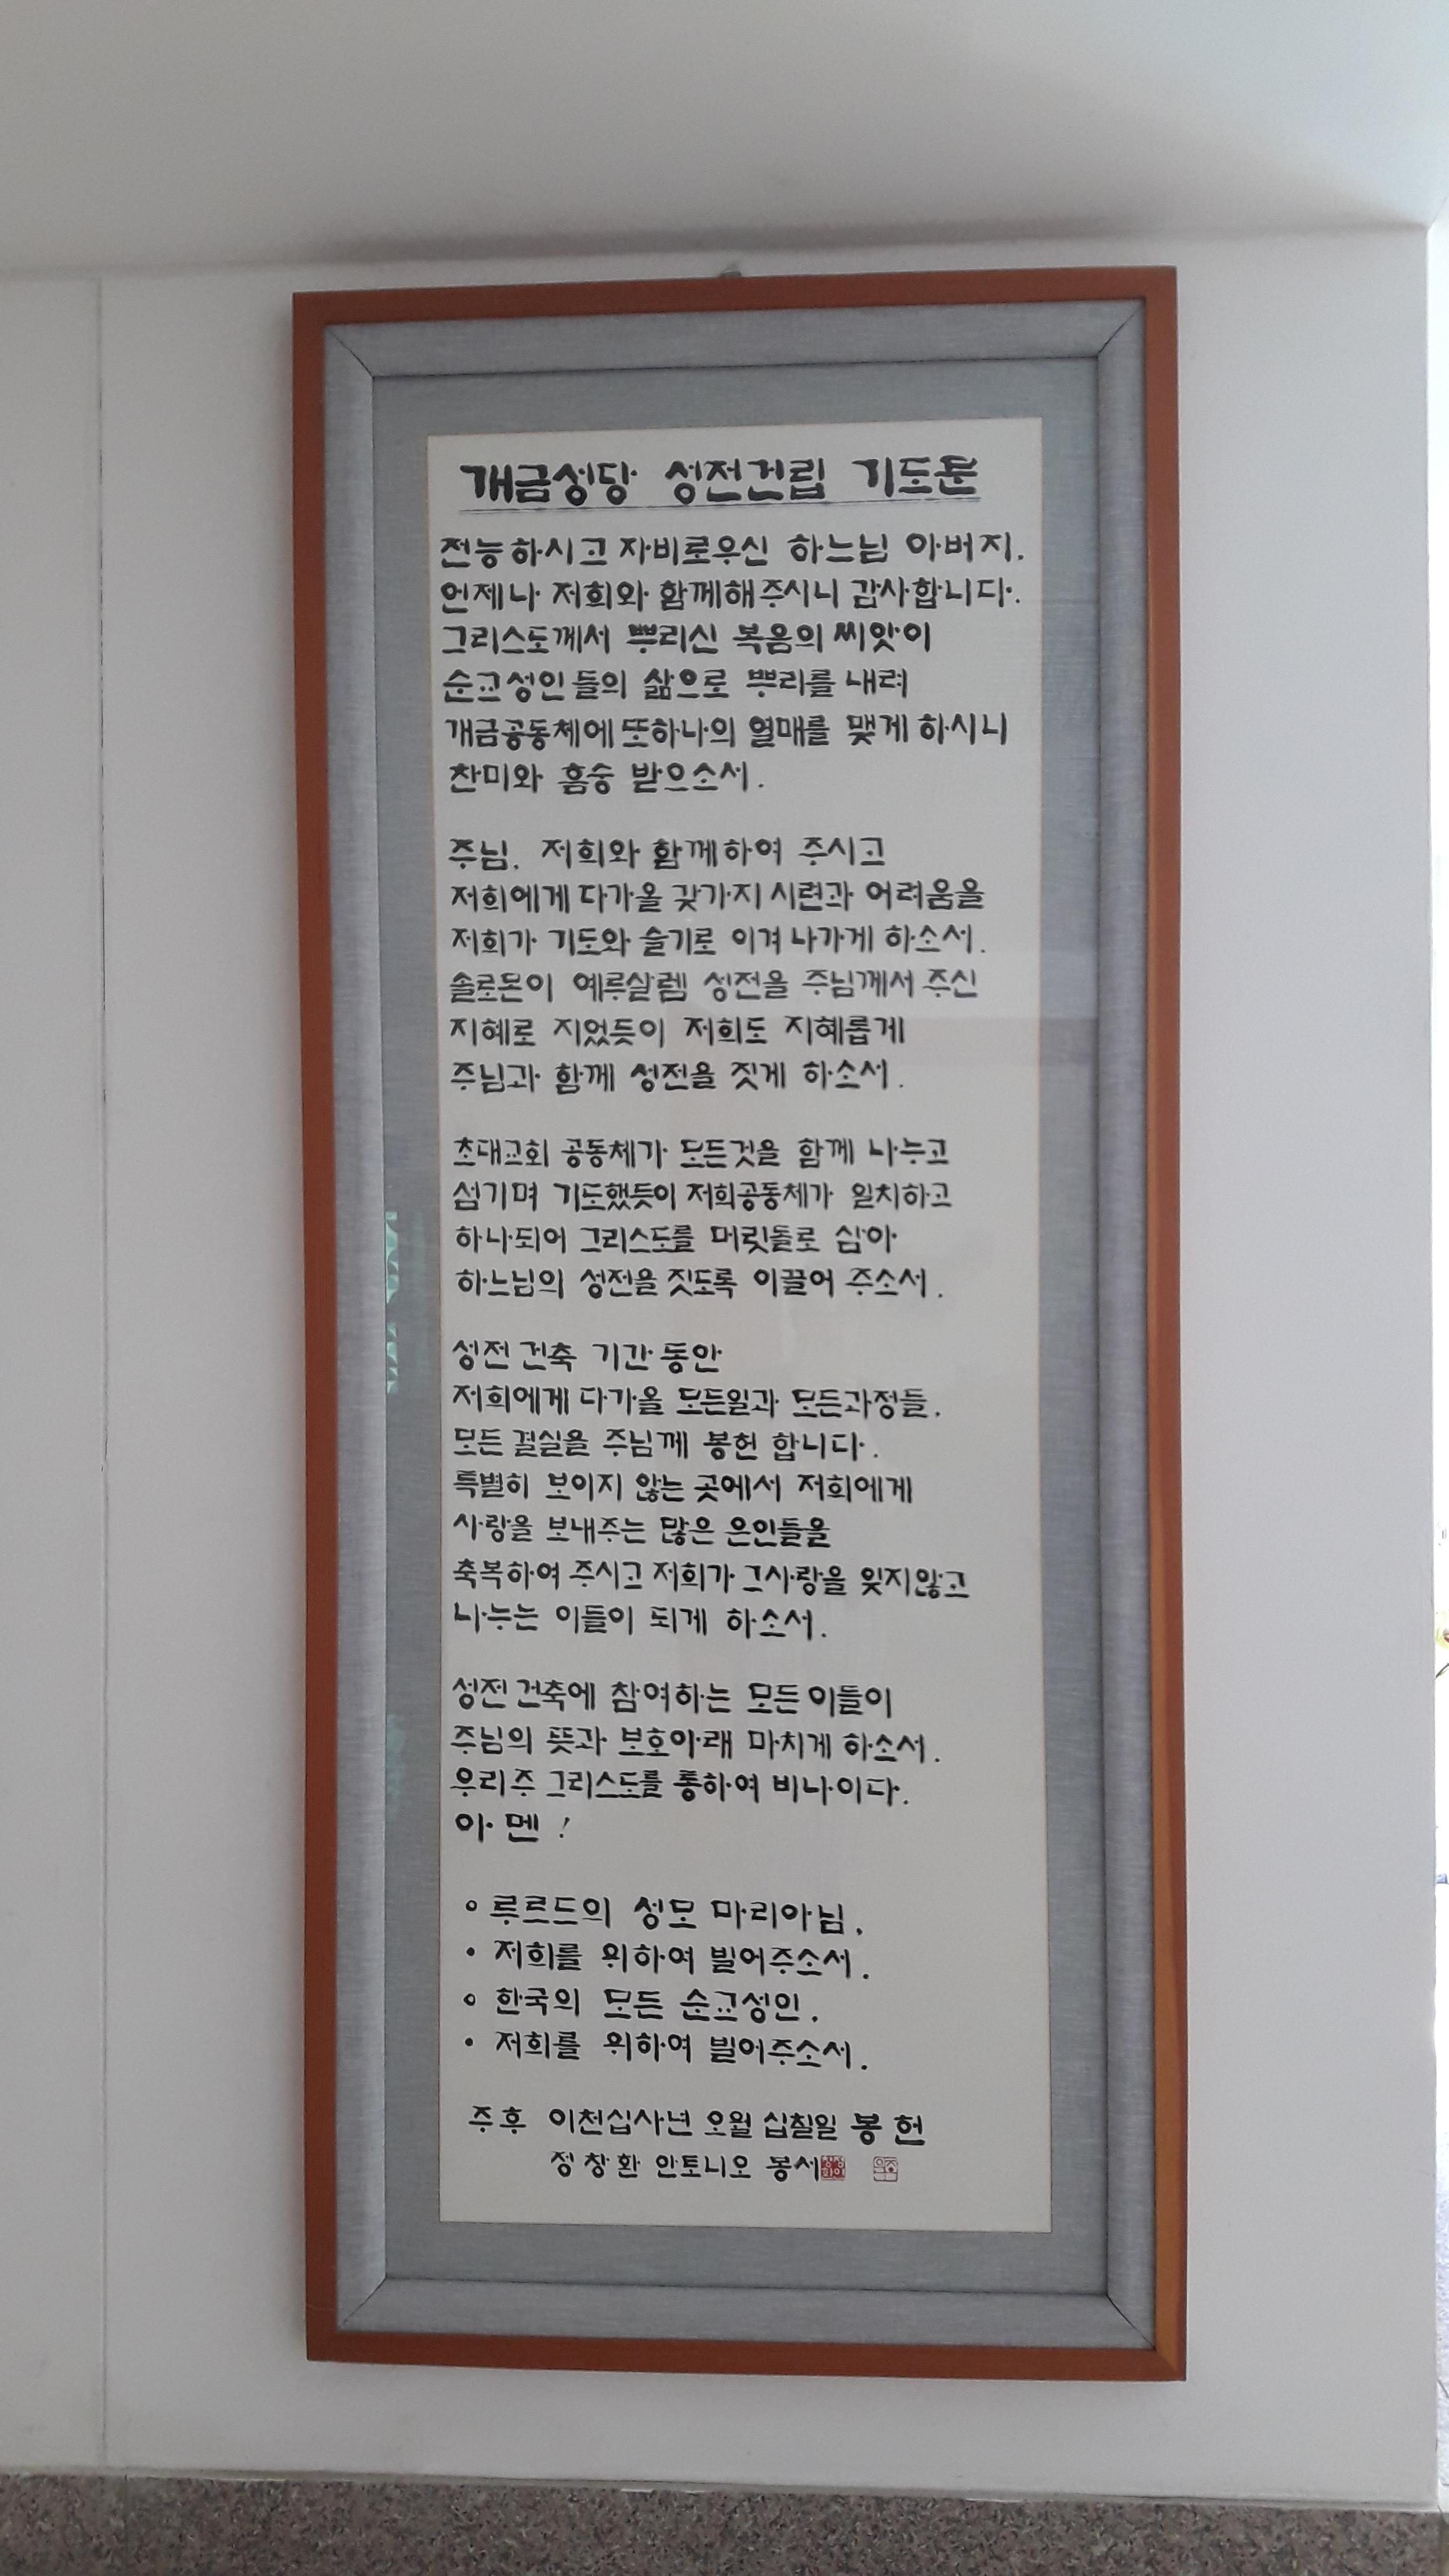 개금성당 성전건립 기도문
전능하시고 자비로우신 하느님 아버지.
언제나 저희와 함께해주시니 감사합니다.
그리스도께서 뿌리신 복음의 씨앗이
순교성인들의 삶으로 뿌리를 내려
개금공동체에 또하나의 열매를 맺게 하시니
찬미와 흠숭 받으소서.
주님. 저희와 함께하여 주시고
저희에게 다가올 갖가지 시련과 어려움을
저희가 기도와 슬기로 이겨 나가게 하소서.
솔로몬이 예루살렘 성전을 주님께서 주신
지혜로 지었듯이 저희도 지혜롭게
주님과 함께 성전을 짓게 하소서.
초대교회 공동체가 모든것을 함께 나누고
섬기며 기도했듯이 저희공동체가 일치하고
하나되어 그리스도를 머릿돌로 삼아
하느님의 성전을 짓도록 이끌어 주소서.
성전 건축 기간 동안
저희에게 다가올 모든일과 모든과정들,
모든 결실을 주님께 봉헌 합니다.
특별히 보이지 않는 곳에서 저희에게
사랑을 보내주는 많은 은인들을
축복하여 주시고 저희가 그사랑을 잊지않고
나누는 이들이 되게 하소서.
성전 건축에 참여하는 모든 이들이
주님의 뜻과 보호아래 마치게 하소서.
우리주 그리스도를 통하여 비나이다.
아멘!
◦ 루르드의 성모 마리아님,
• 저희를 위하여 빌어주소서.
◦ 한국의 모든 순교성인,
• 저희를 위하여 빌어주소서.
주후 이천십사년 오월 십칠일 봉헌
정창환 안토니오 봉서